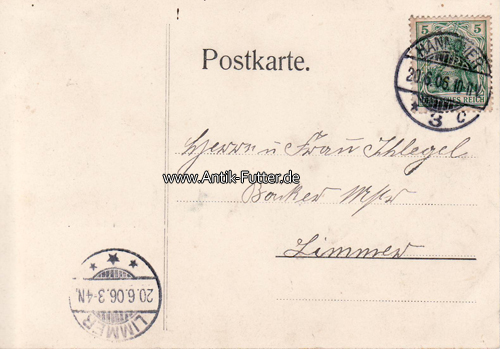 5 5
HANNOVER
20.6.06.10-11V.
* 3 c
DEUTSCHES REICH
Postkarte.
Herrn u Frau Schlegel
www.Antik-Futter.de
Bäcker Mstr
Limmer
20.6.06.3-4N.
LIMMER